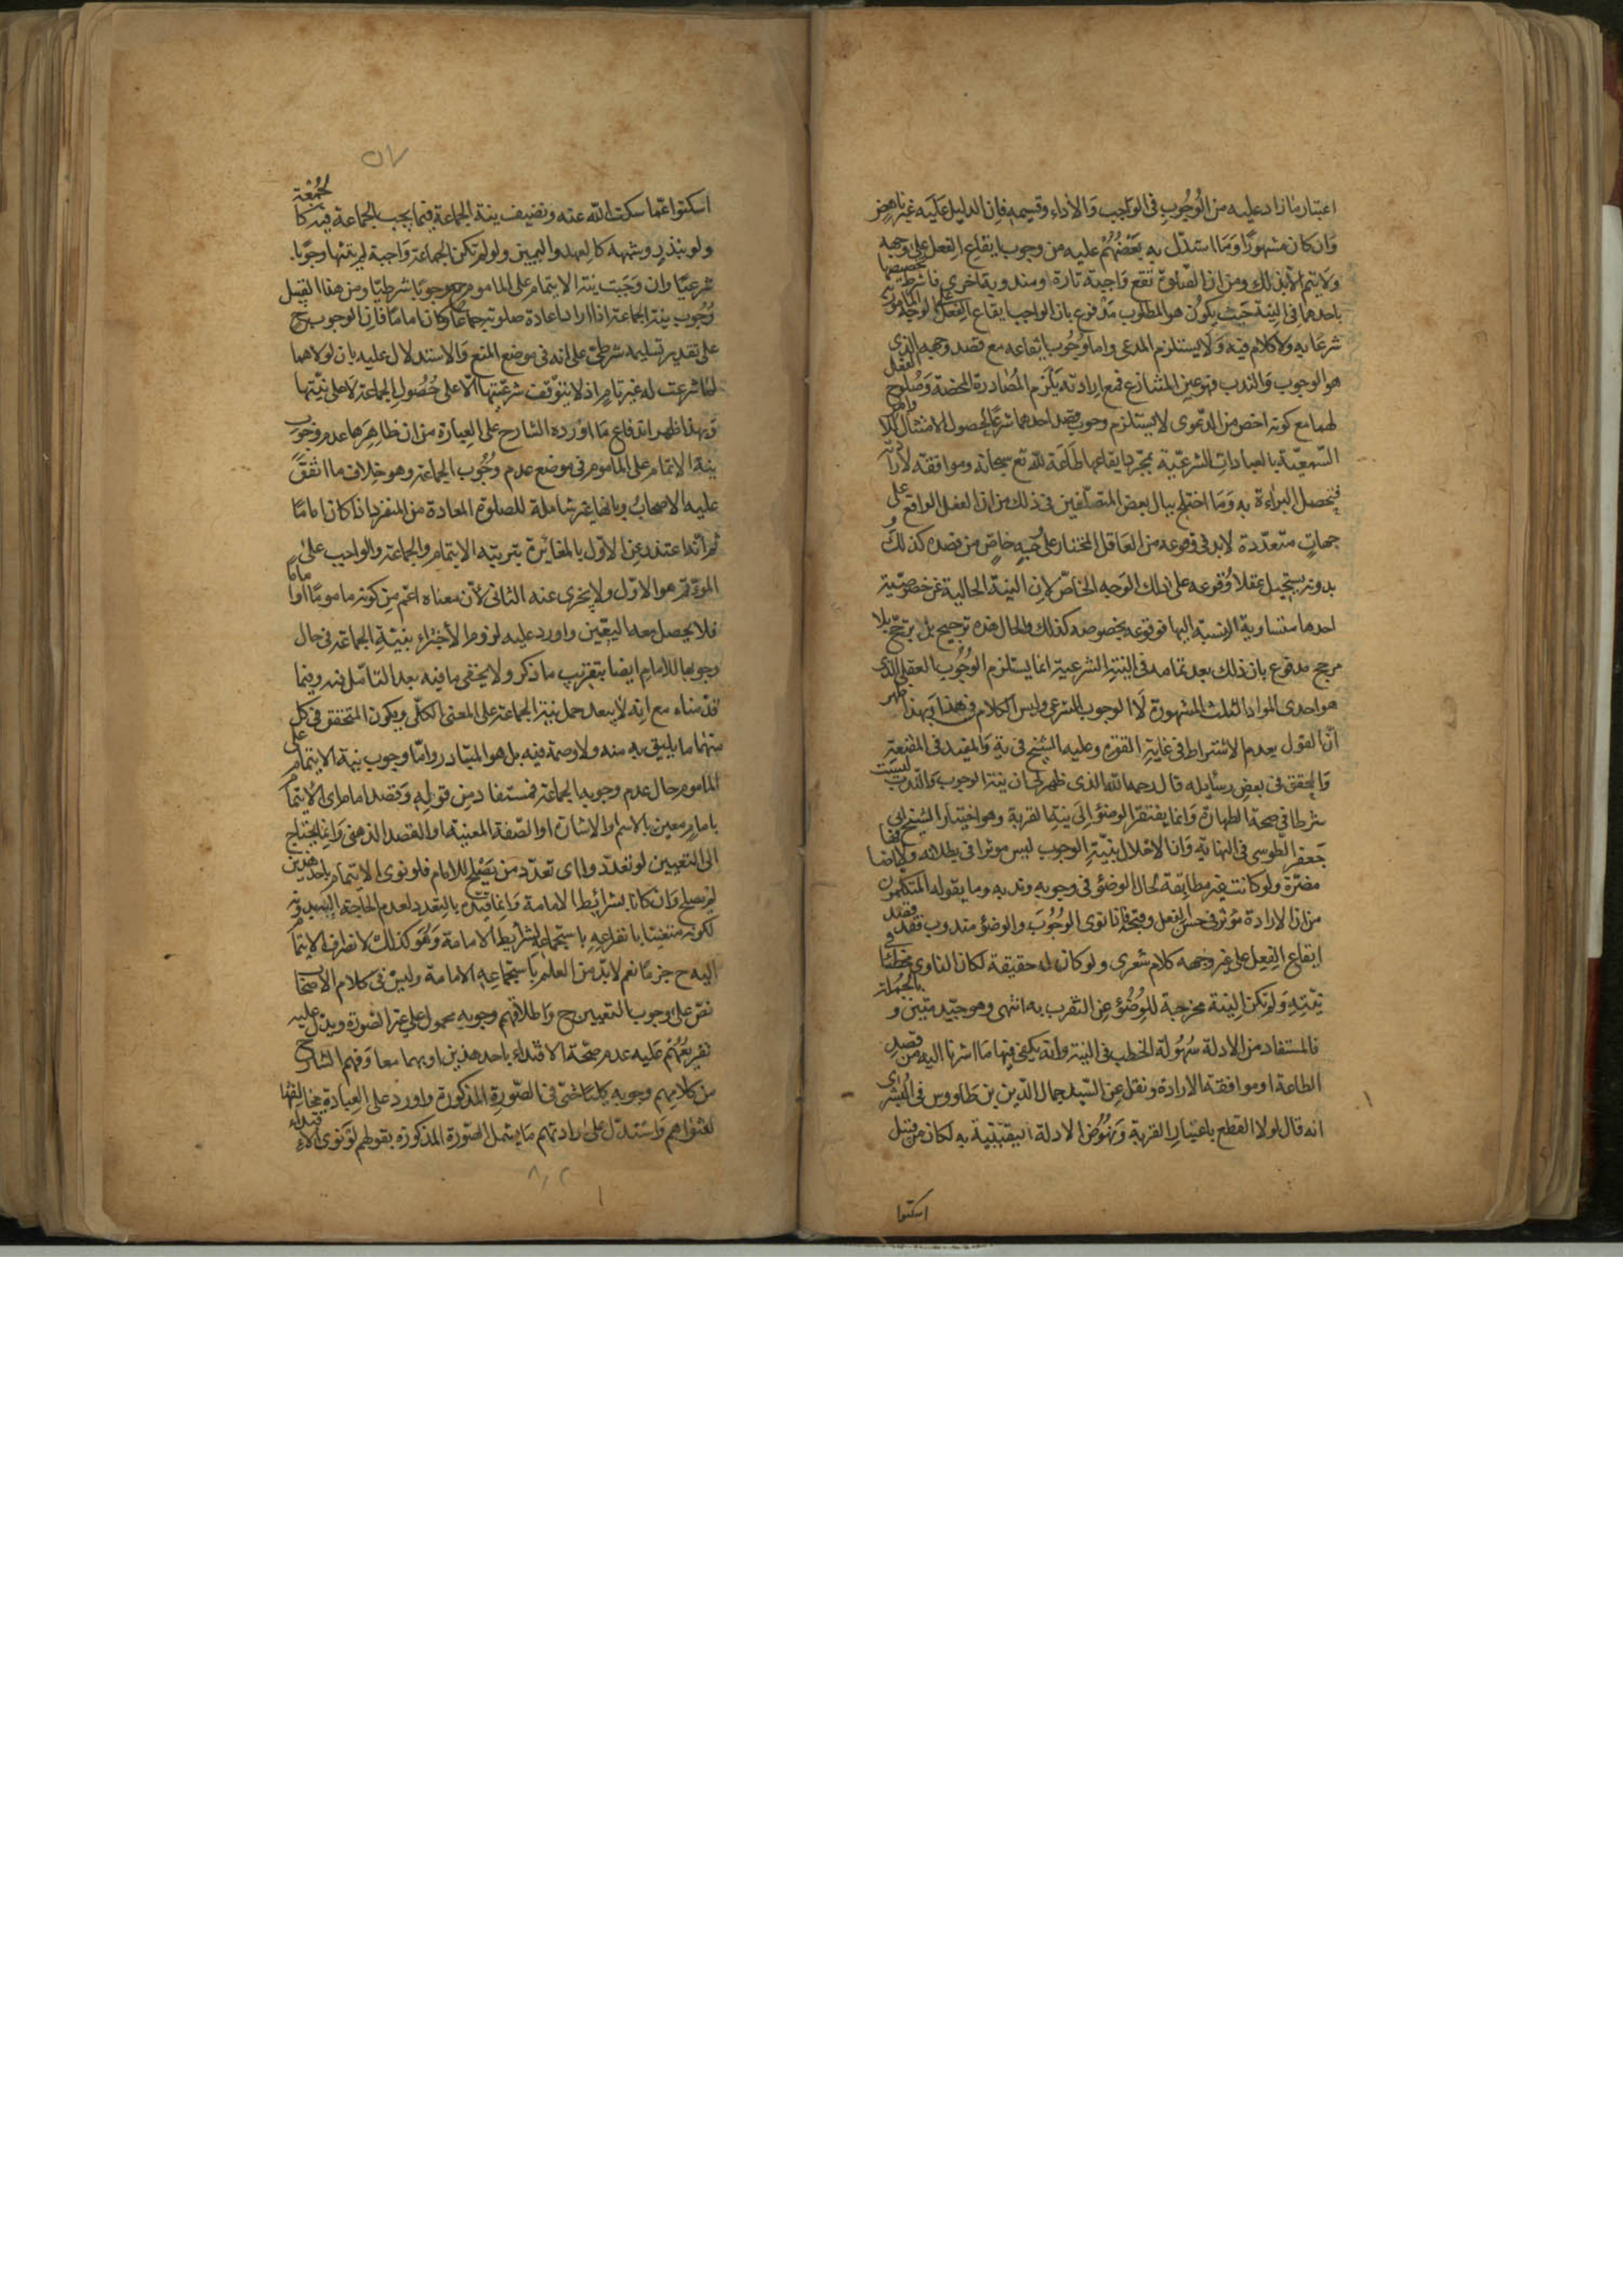 اعتبار ما زاد عليه من الوُجُوبِ فى الواجب وَالأداء وقسيمه فاِن الدليل عليه غير ناهض
وَان كان مشهورًا وَمَا استدل به بَعْضُهُمْ عليه من وجوب ايقاع الفعل على وجهه
وَلا يتم الّا بذلك ومن ان الصّلوة تقع وَاجبة تارة ومندوبة اخرى فاشترط تخصيصها
باحدهما فى النية حَيث يكُون هو المطلوب مَدْفوع بان الواجب ايقاع الفعل على الوجه المامور به
شرعًا به ولا كلام فيه وَلا يستلزم المدعى واما وُجُوب ايقاعه مع قصد وجهه الذى
هو الوجوب وَالندب فهو عين المتنازع فمع ارادته يَلْزم المُصادرة المحضة وَصُلوح الفعل
لهما مع كونه اخص من الدّعوى لا يستلزم وجوب قصد احدهما شرعًا لحصول الامتثال للاوامر
السّمعيّة بالعبادات الشرعيّة بمجرد ايقاعها طَاعَة للّه تع سبحانه وموافقته لارادته
فيحصل البراءة به وَمَا اختلج ببال بعض المتصلّفين فى ذلك من ان الفعل الواقع على
جهاتٍ متعدّدة لابد فى وقوعه من العَاقل المختار على وجهٍ خاصٍّ من قصده كذلكَ و
بدونه يستحيل عقلا وُقوعه على ذلك الوَجه الخاصّ لاِن النيّة الخالية عن خصوصيّة
احدها متساوية النسبة اليها فوقوعه بخصوصه كذلك والحال هذه ترجيح بل ترجّح بلا
مرجح مدفوع بان ذلك بعد تمامه فى النيّةِ الشرعيّة انما يستلزم الوُجُوب العقلى الذى
هو احدى المواد الثلث المشهورة لَا الوجوب الشرعى وليس الكلام فى هذا وَبهذا ظهر
انّ القول بعدم الاشتراط فى غايةِ القوّة وعليه الشيخ فى ية وَالمفيد فى المقنعة
وَالمحقق فى بعض رسائله قال رحمه اللّه الذى ظهر لى ان نيّة الوجوب وَالنّدب ليست
شرطا فى صحة الطهارة وَانما يفتقر الوضوء اِلَى نيّة القربة وهو اختيار الشيخ ابى
جَعفر الطّوسى فى النهاية وَان الاخلال بنيّةِ الوجوب ليس موثرا فى بطلانه ولا اضافتها
مضرّة ولو كانت غير مطابقة لحال الوضوء فى وجوبه وندبه وما يقوله المتكلمُون
من ان الارادة تؤثر فى حسن الفعل وقبحه فاذا نوى الوُجُوبَ والوضوء مندوب فقد قصد
ايقاع الفِعل على غير وجهه كلام شعرى ولو كان له حقيقة لكان الناوى مخطئًا فى
نيّتِهِ وَلم تكن النية مخرجة للوُضُوء عن التقرب به انتهى وهو جيّد متين و بالجملة
فالمستفاد من الادلة سُهُولة الخطب فى النية وانه يكفى فيها مَا اشرنا اليه من قصد
الطاعة او موافقة الارادة ونقل عن السّيد جمال الدّين بن طاووس فى البُشرى
انه قال لولا القطع باعتبار القربة وَنهُوض الادلة اليقينيّة به لكان من قبيل
اسكتوا
اسكتوا عمّا سكت اللّه عنه وتضيف نيّة الجماعة فيما يجب الجماعة فيه كالجُمُعَة
ولو بنذر وشبهه كالعهد واليمين ولو لم تكن الجماعة وَاجبة لم يتعيّنها وجوبًا
شرعيًا وان وَجَبت نيّة الايتمام على الماموم وجوبا شرطيًا ومن هذا القبيل
وُجُوب نيّة الجماعة اذا اراد اعادة صلوته جماعةً وَكان امامًا فاِن الوجوب ح
على تقدير تسليمه شرطىّ على انه فى موضع المنع وَالاستدلال عليه بان لولاهما
لمَا شرعت له غير تامٍ اذ لا يتوقّف شرعيّتها الّا على حُصُولِ الجماعة لَا على نيّتها
وَبهذا ظهر اندفاع مَا اورده الشارح على العبارة من ان ظاهِرها عدم وجُوب
نيّة الايتمام على المأموم فى موضع عدم وُجُوب الجماعة وهو خلاف ما اتفقَ
عليه الاصحابُ وبانها غير شاملة للصلوة المعادة من المنفرد اذا كان امامًا
ثم انّه اعتذر عن الاوّل بالمغايرة بين نيّة الايتمام والجماعة والواجب على
المؤتمّ هو الاوّل ولا يجزى عنه الثانى لانّ معناه اعّم مِن كونه مامومًا او امامًا
فلا يحصل معه اليعيّين واورد عليه لزوم الأجْزاء بنيّةِ الجماعة فى حال
وجوبها للامام ايضا بتقريب ما ذكر ولا يخفى ما فيه بعد التأمّل فيه وفيما
قدّمناه مع انّه لا يبعد حمل نيّة الجماعة على المعنى الكلّى ويكون المتحقق فى كل
منهما ما يليق به منه ولا وصمة فيه بل هو المتبادر وامّا وجوب نيّة الايتمام على
المأموم حال عدم وجوب الجماعة فمستفاد مِن قولِهِ وَقصد امام اى الايتمام
بامامٍ معين بالاسم او الاشارة او الصّفة المعينة او القصد الذهنى وَانما يحتاج
الى التعيين لو تعدّد وااى تعدّد من يَصْلح للامام فلو نوى الايتمام باحد هذين
لم يصح وان كانا بشرائط الامامة وَانما قيّده بالتعدد لعدم الحَاجة اليه بدونه
لكونه متعينًا بانفراده باستجماع شرائط الامامة وَهُو كذلك لانصراف الايتمام
اليه ح جزمًا نعم لابدّ من العلم باستجماعه الامامة وليسَ فى كلام الأصحاب
نصّ على وجوب التعيين ح وَاطلاقهم وجوبه محمول على غير الصّورة ويدلّ عليه
تفريعُهُم عليه عدم صحّة الاقتداء باحد هذين او بهما معا وَفهم الشارح
من كلامهم وجوبه كليًا حَتّى فى الصّورة المذكورة واورد على العبادة مخالفتها
لفتواهم وَاستدلّ على ارادتهم مَا يشمل الصّورة المذكورة بقولهم لَو نوى الاقتداء